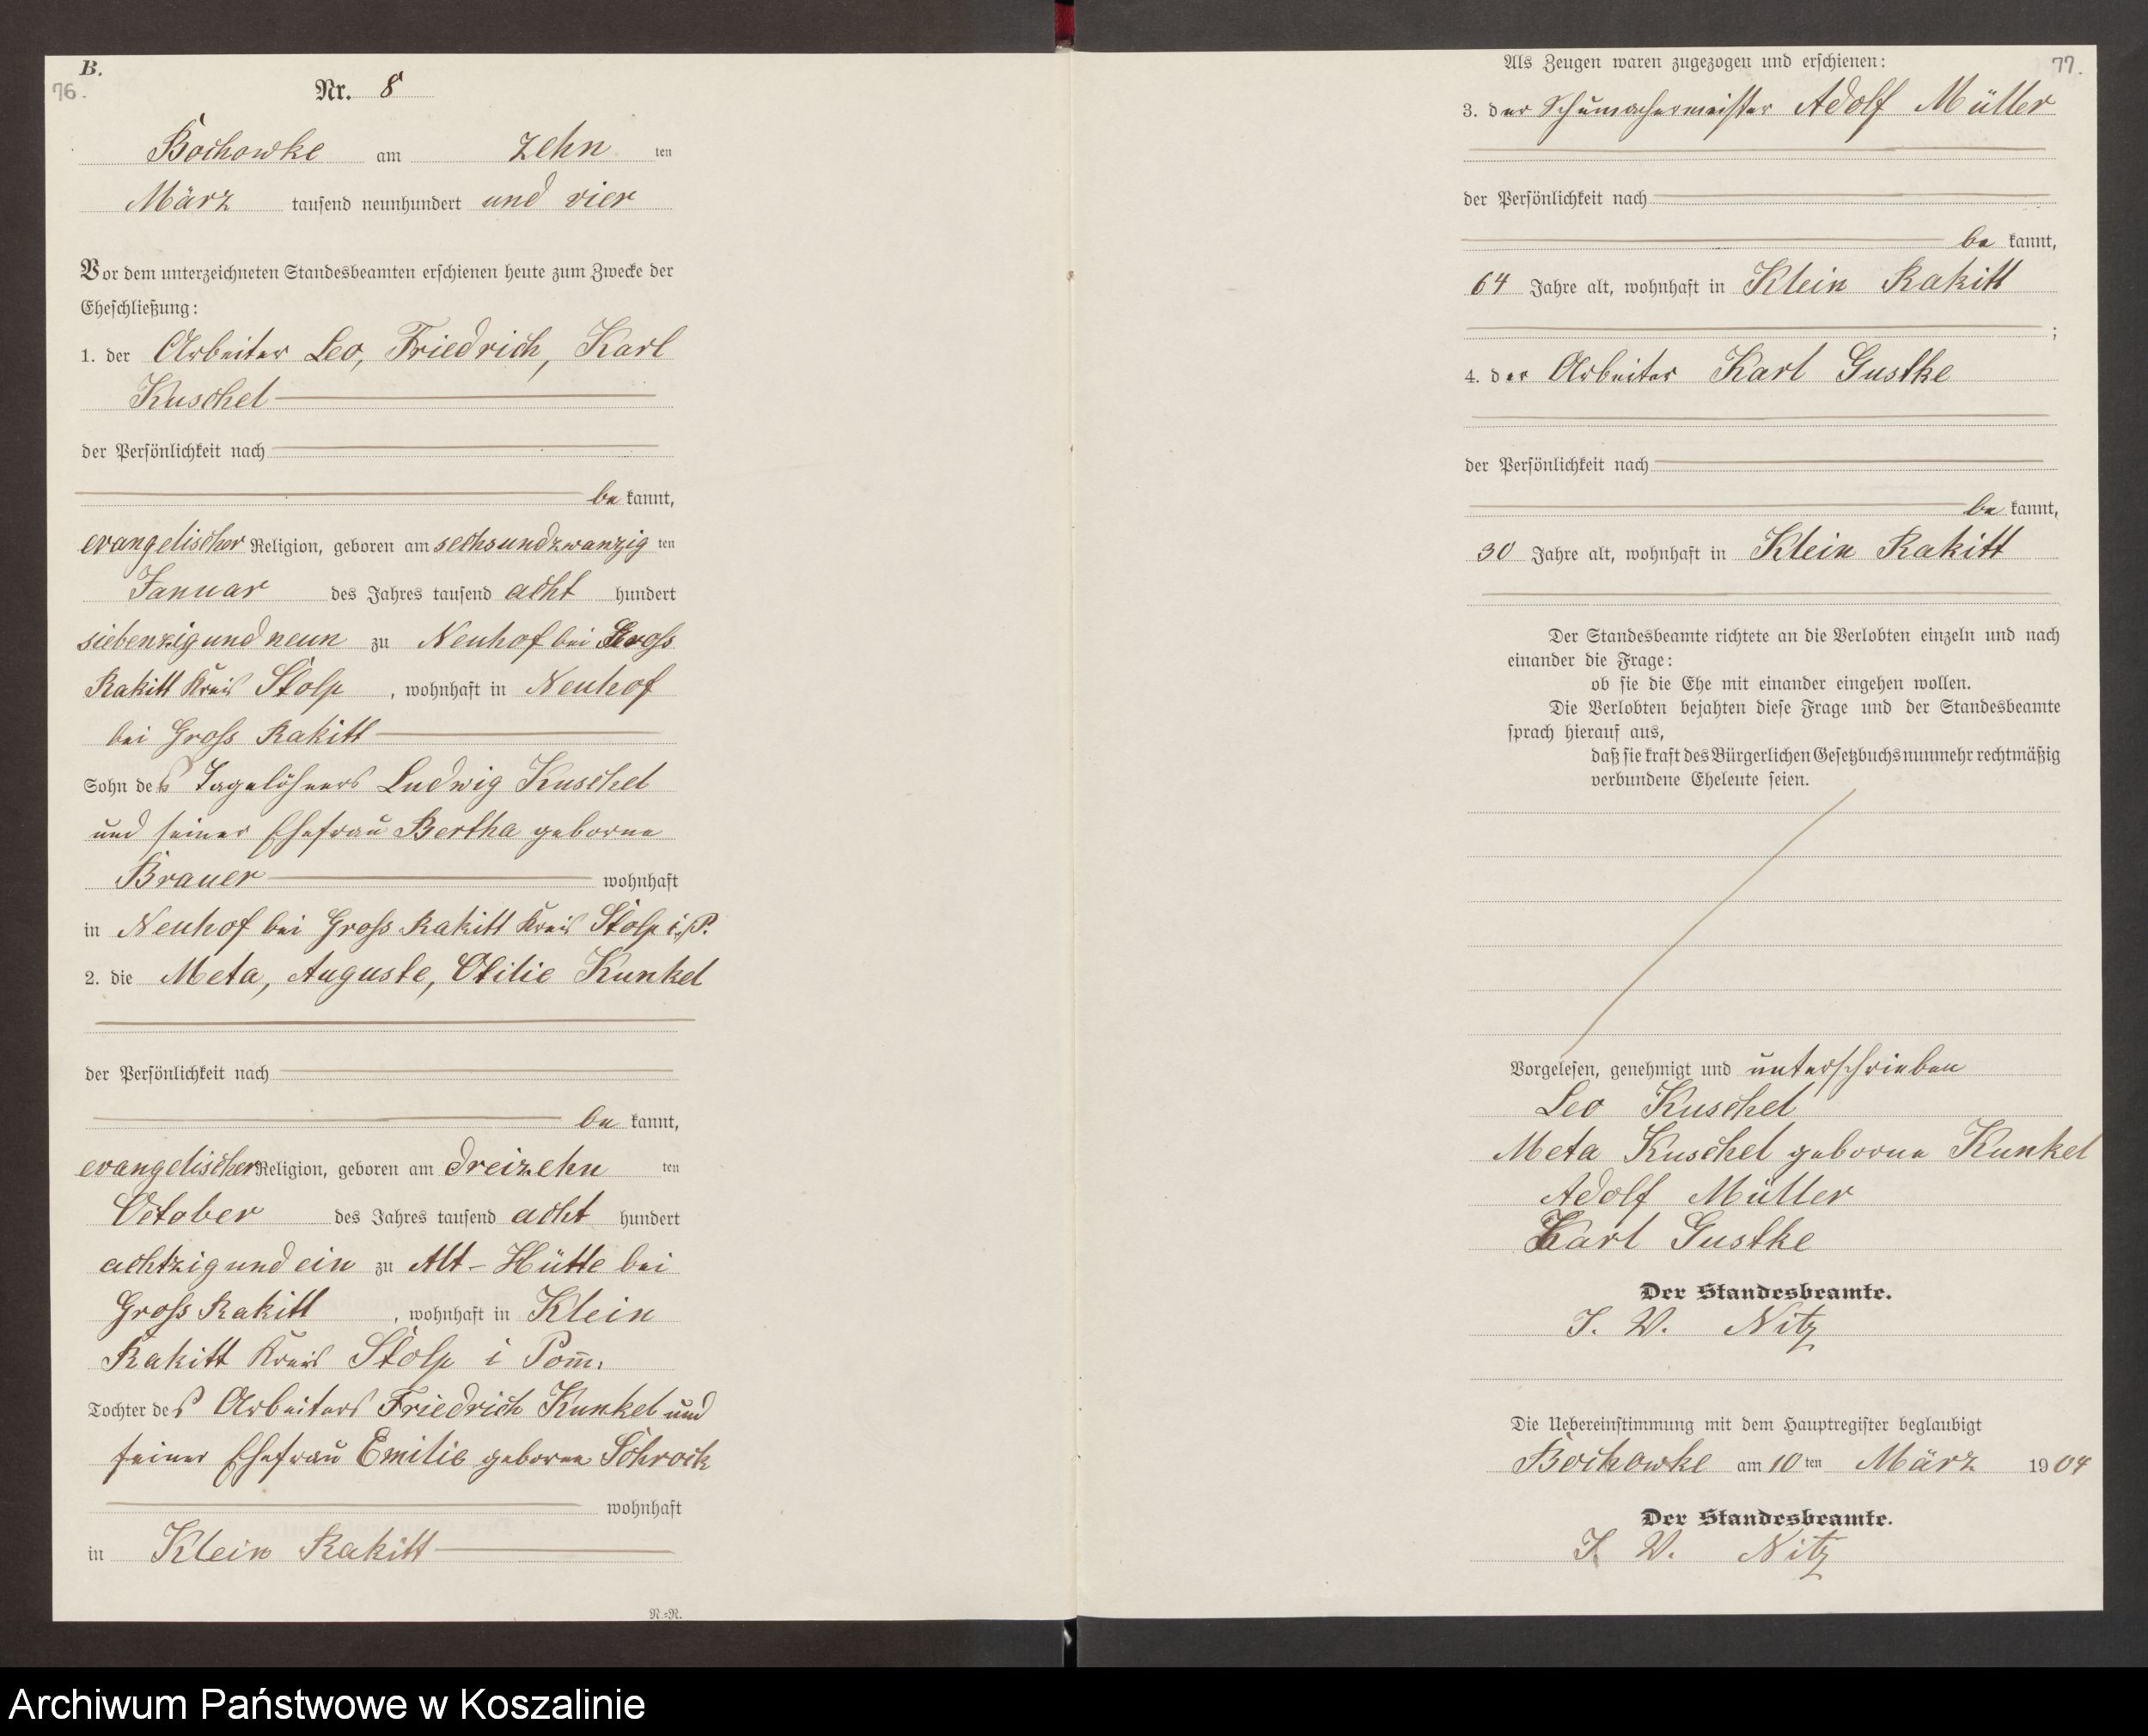 B.
76.
Nr. 8
Bochowke am zehn ten
März tausend neunhundert und vier
Vor dem unterzeichneten Standesbeamten erschienen heute zum Zwecke der
Eheschließung:
1. der Arbeiter Leo, Friedrich, Karl
Kuschel
der Persönlichkeit nach
be kannt,
evangelischer Religion, geboren am sechsundzwanzig ten
Januar des Jahres tausend acht hundert
siebenzig und neun zu Neuhof bei Gross
Rakitt Kreis Stolp, wohnhaft in Neuhof
bei Gross Rakitt
Sohn des Tagelöhners Ludwig Kuschel
und seiner Ehefrau Bertha geborne
Brauer wohnhaft
in Neuhof bei Gross Rakitt Kreis Stolp i. P.
2. die Meta, Auguste, Otilie Kunkel
der Persönlichkeit nach
be kannt,
evangelischer Religion, geboren am dreizehn ten
October des Jahres tausend acht hundert
achtzig und ein zu Alt-Hütte bei
Gross Rakitt, wohnhaft in Klein
Rakitt Kreis Stolp i Pom̄.
Tochter des Arbeiters Friedrich Kunkel und
seiner Ehefrau Emilie geborne Schrock
wohnhaft
in Klein Rakitt
N.=N.
77.
Als Zeugen waren zugezogen und erschienen:
3. der Schumachermeister Adolf Müller
der Persönlichkeit nach
be kannt,
64 Jahre alt, wohnhaft in Klein Rakitt
;
4. der Arbeiter Karl Gustke
der Persönlichkeit nach
be kannt,
30 Jahre alt, wohnhaft in Klein Rakitt
Der Standesbeamte richtete an die Verlobten einzeln und nach
einander die Frage:
ob sie die Ehe mit einander eingehen wollen.
Die Verlobten bejahten diese Frage und der Standesbeamte
sprach hierauf aus,
daß sie kraft des Bürgerlichen Gesetzbuchs nunmehr rechtmäßig
verbundene Eheleute seien.
Vorgelesen, genehmigt und unterschrieben
Leo Kuschel
Meta Kuschel geborne Kunkel
Adolf Müller
Karl Gustke
Der Standesbeamte.
I. V. Nitz
Die Uebereinstimmung mit dem Hauptregister beglaubigt
Bochowke am 10 ten März 1904
Der Standesbeamte.
I. V. Nitz
Archiwum Państwowe w Koszalinie